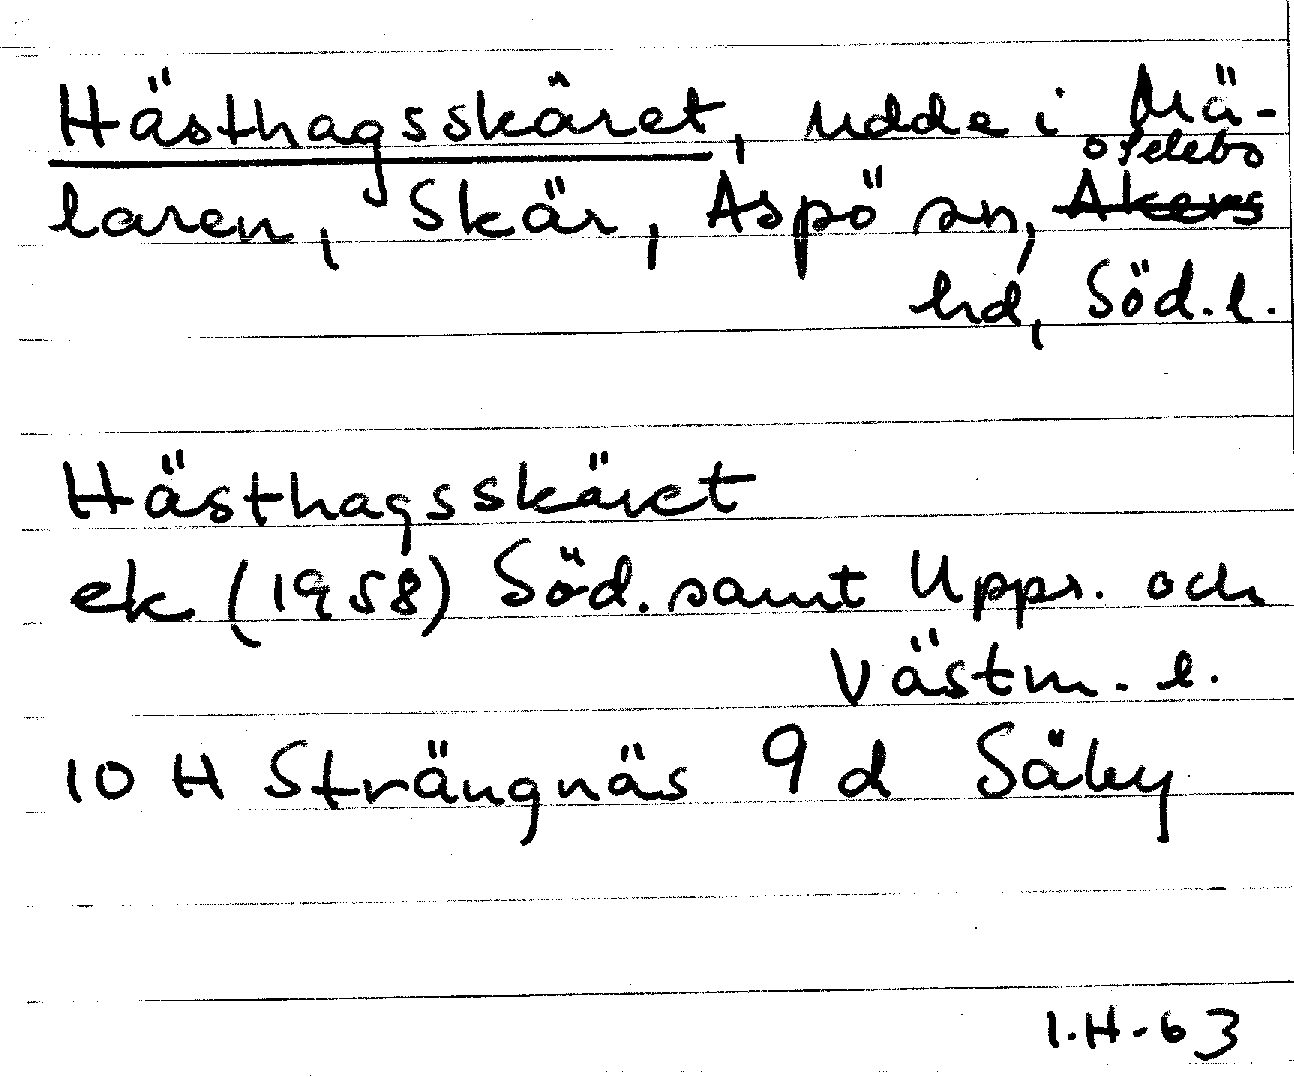 Hästhagsskäret, udde i Mä-
laren, Skär, Aspö sn, Selebo
Åkers
hd, Söd.l.
Hästhagsskäret
ek (1958) Söd. samt Upps. och
Västm. l.
10 H Strängnäs 9 d Säby
I.H-63